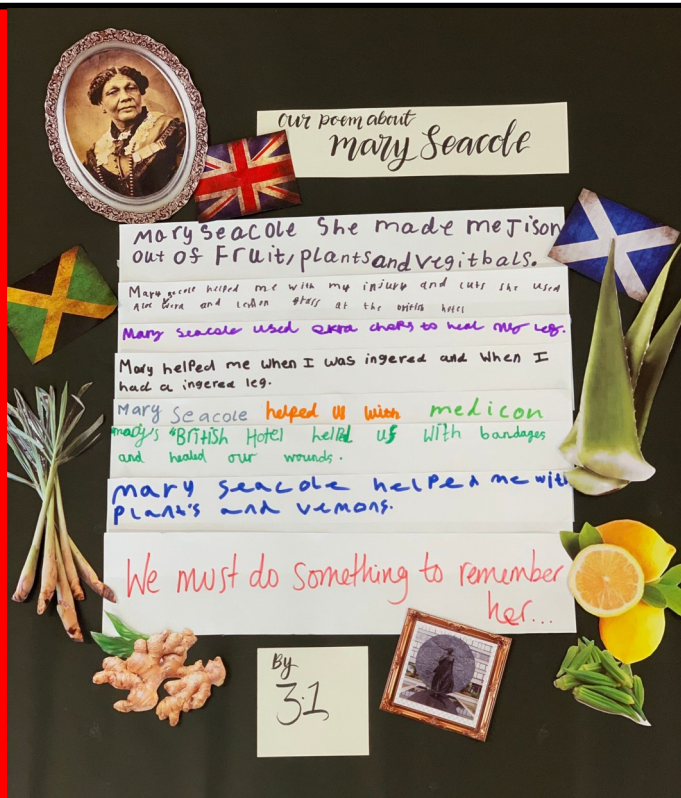 our poem about
mary Seacole
Mary seacole She made meJison
out of Fruit, plants and vegitbals.
Mary secole helped me with my injury and cuts she used
Aloe Vera and lemon grass at the british hotel
Mary seacole used okra chops to heal my leg.
Mary helped me when I was ingered and when I
had a ingered leg.
Mary Seacole helped us with medicon
mary's British Hotel helped us with bandages
and healed our wounds.
mary seacole helped me with
plant's and vemons.
We must do something to remember
her...
By
3.1